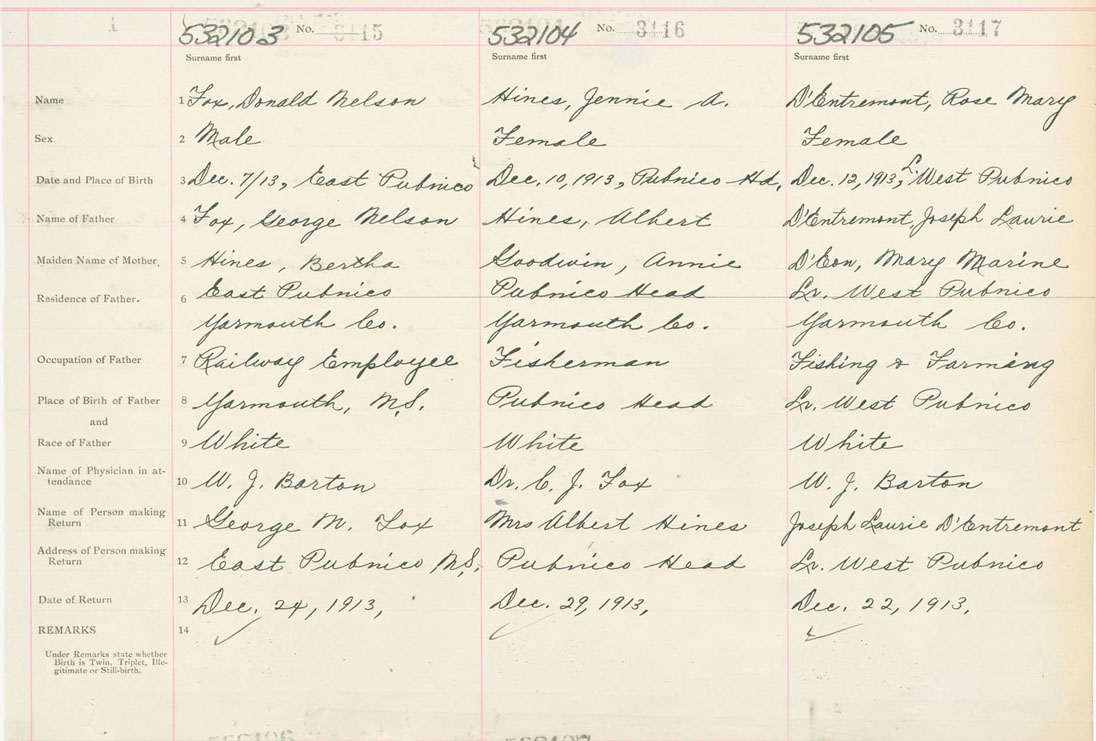 532103 No. 3115 532104 No. 3116 532105 No. 3117
Surname first Surname first Surname first
Name 1 Fox, Donald Nelson Hines, Jennie A. D'Entremont, Rose Mary
Sex 2 Male Female Female
Date and Place of Birth 3 Dec. 7/13, East Pubnico Dec. 10, 1913, Pubnico Hd, Dec. 12, 1913, L. West Pubnico
Name of Father 4 Fox, George Nelson Hines, Albert D'Entremont, Joseph Laurie
Maiden Name of Mother. 5 Hines, Bertha Goodwin, Annie D'Eon, Mary Marine
Residence of Father. 6 East Pubnico Pubnico Head Lr. West Pubnico
Yarmouth Co. Yarmouth Co. Yarmouth Co.
Occupation of Father 7 Railway Employee Fisherman Fishing & Farming
Place of Birth of Father 8 Yarmouth, N.S. Pubnico Head Lr. West Pubnico
and
Race of Father 9 White White White
Name of Physician in at-
tendance 10 W. J. Barton Dr. C. J. Fox W. J. Barton
Name of Person making
Return 11 George N. Fox Mrs Albert Hines Joseph Laurie D'Entremont
Address of Person making
Return 12 East Pubnico N.S. Pubnico Head Lr. West Pubnico
Date of Return 13 Dec. 24, 1913, Dec. 29, 1913, Dec. 22, 1913,
REMARKS 14
Under Remarks state whether
Birth is Twin, Triplet, Ille-
gitimate or Still-birth.